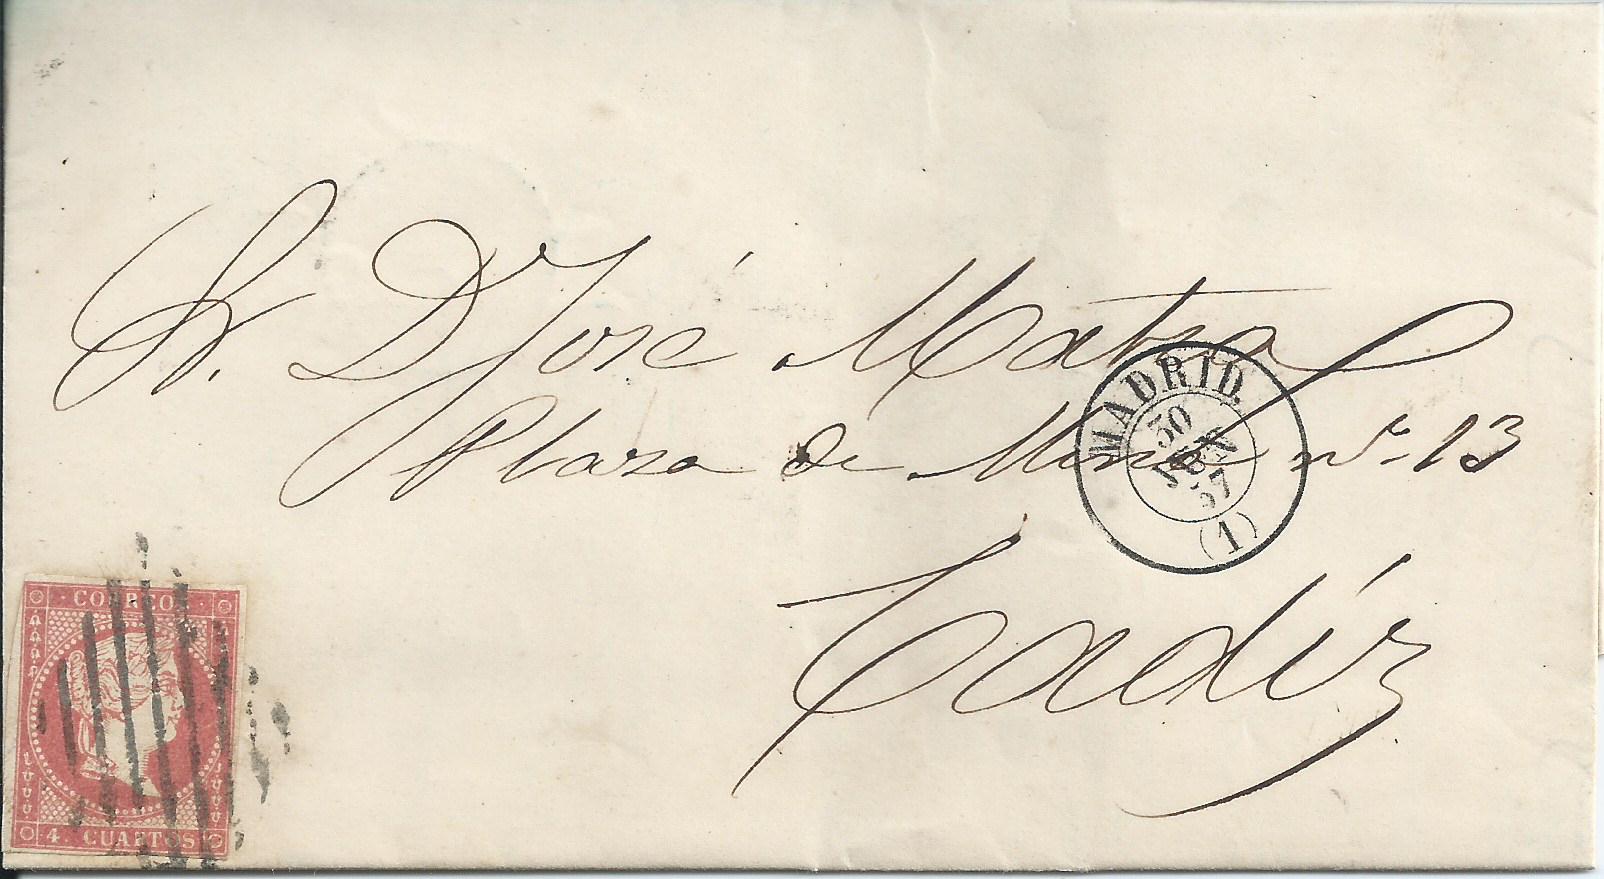 Sr. D José Matra
Plaza de Mina nº 13
Cadiz
MADRID.
30
JUN
57
(1)
CORREOS
4. CUARTOS